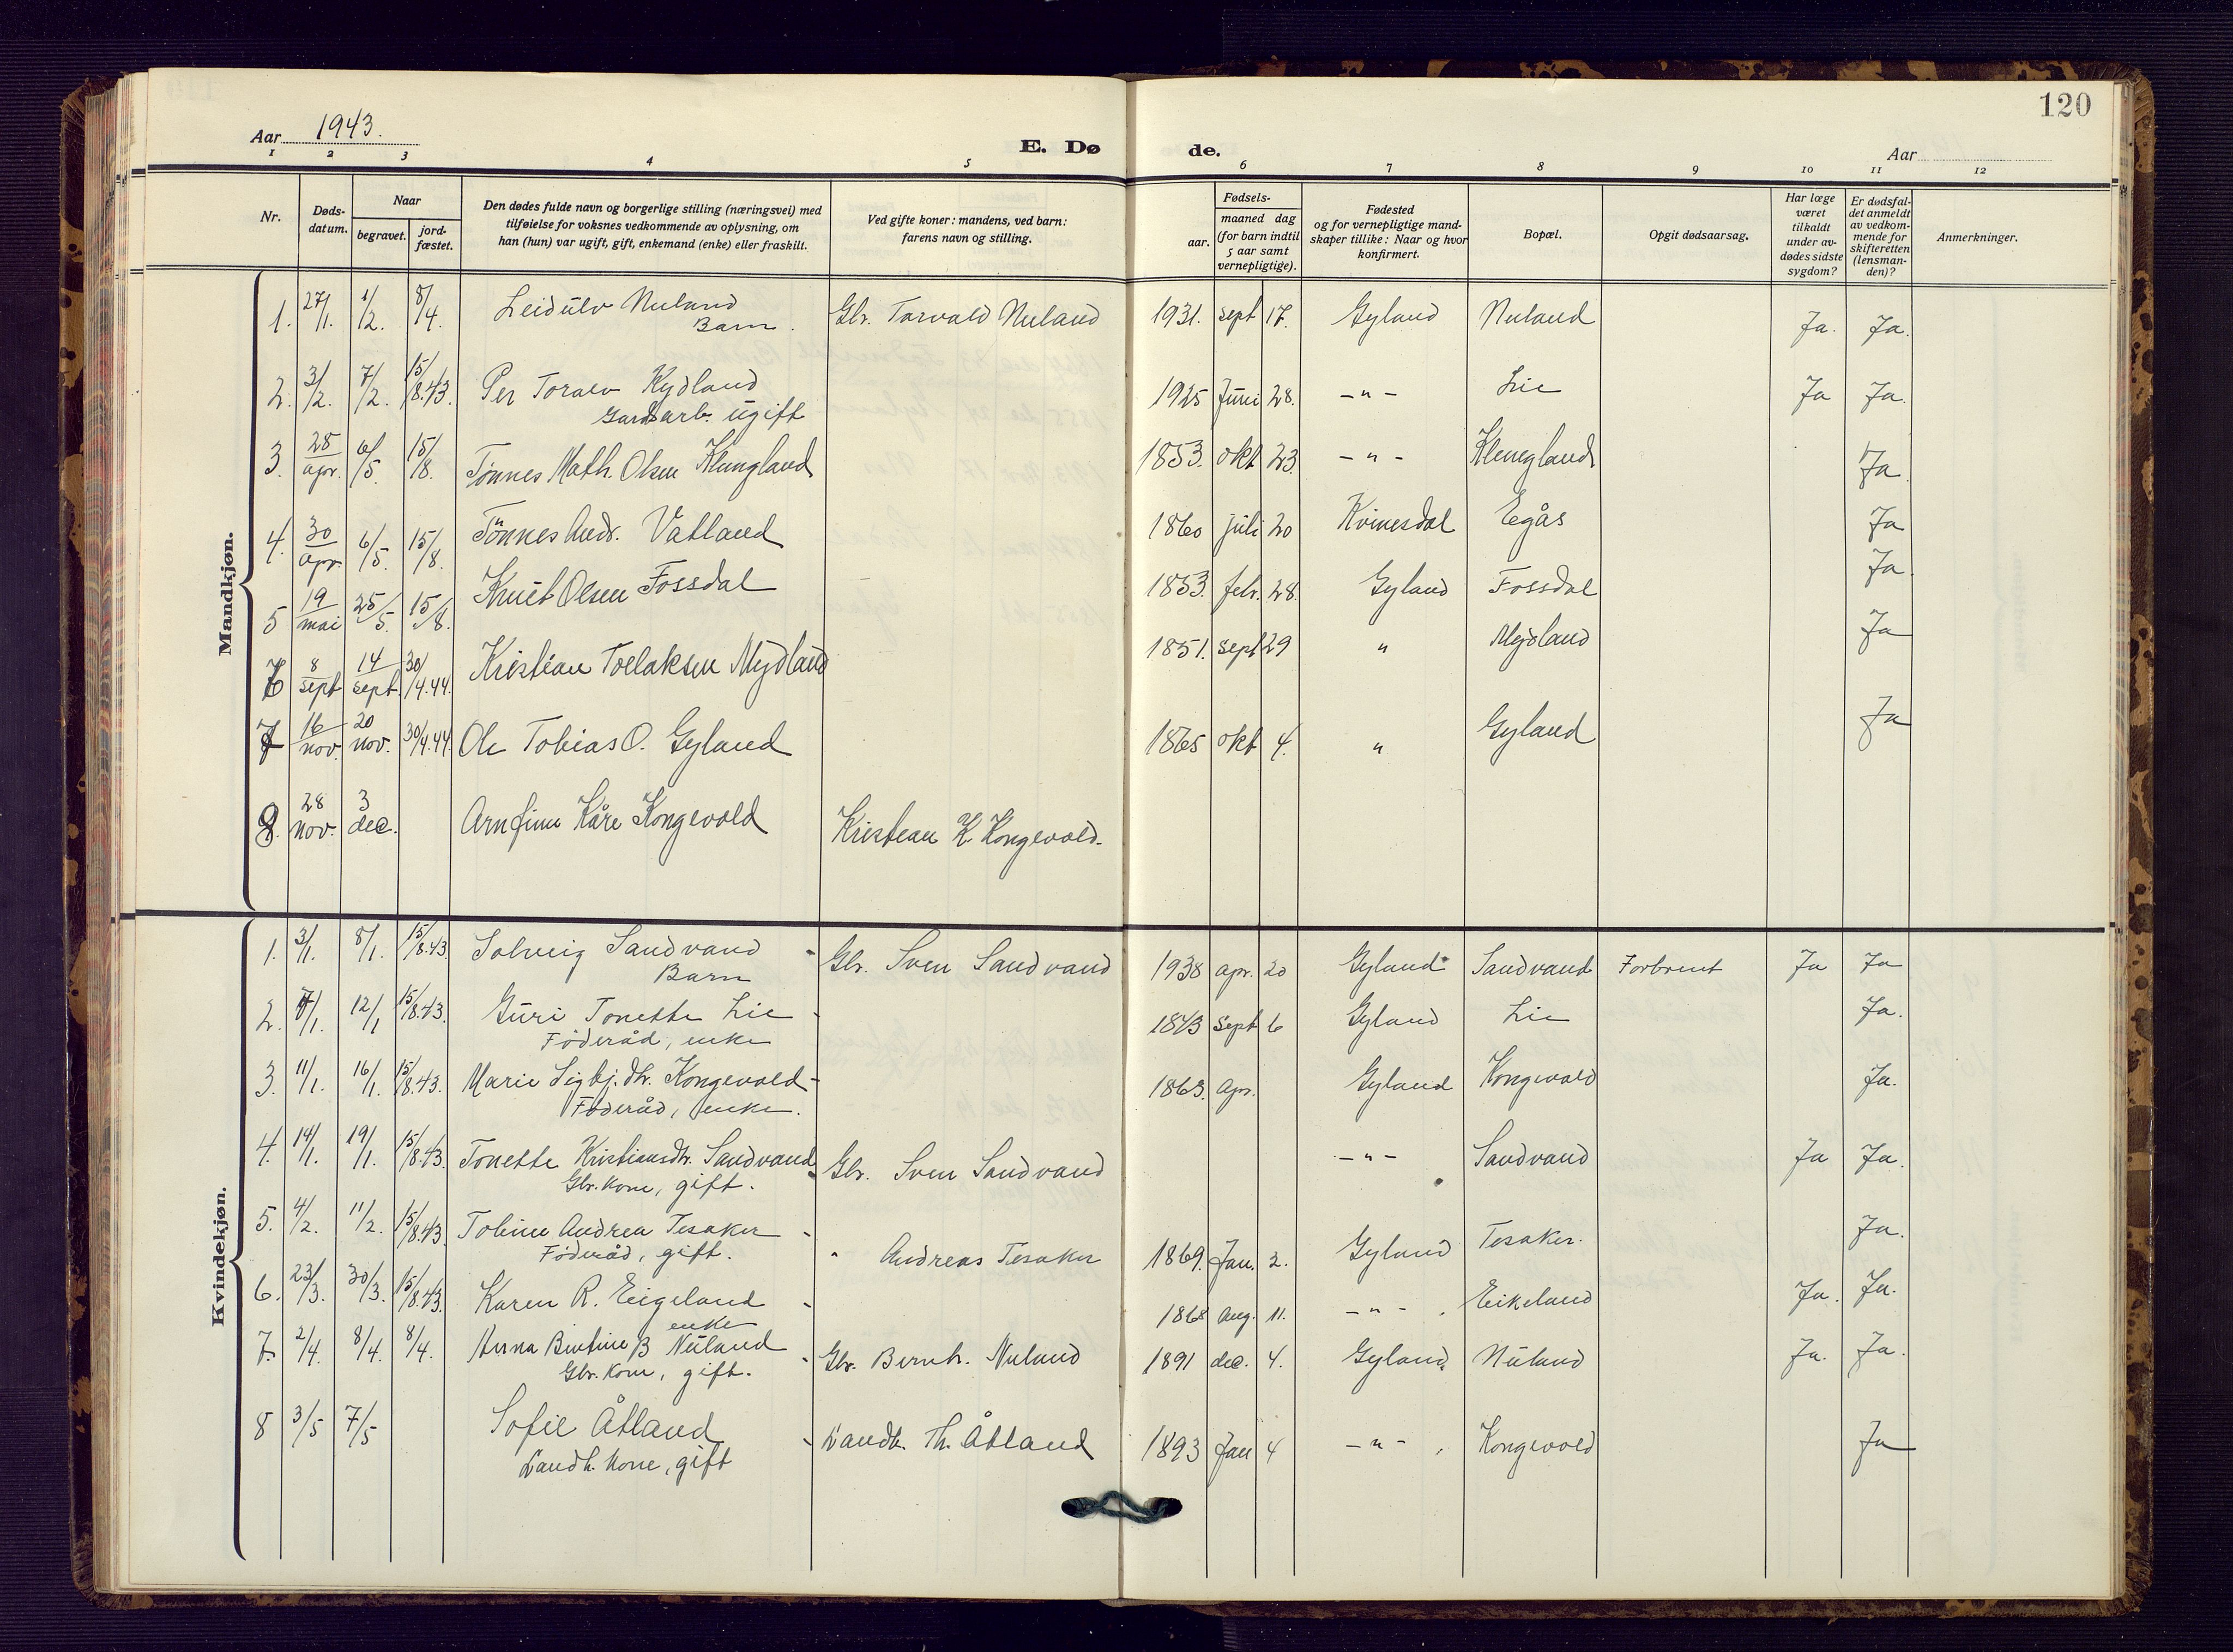 120
Aar 1943.
E. Dø de.
Aar
1 2 3 4 5 6 7 8 9 10 11 12
Nr.
Døds-
datum.
Naar
begravet.
jord-
fæstet.
Den dødes fulde navn og borgerlige stilling (næringsvei) med
tilføielse for voksnes vedkommende av oplysning, om
han (hun) var ugift, gift, enkemand (enke) eller fraskilt.
Ved gifte koner: mandens, ved barn:
farens navn og stilling.
Fødsels-
aar.
maaned dag
(for barn indtil
5 aar samt
vernepligtige).
Fødested
og for vernepligtige mand-
skaper tillike: Naar og hvor
konfirmert.
Bopæl.
Opgit dødsaarsag.
Har læge
været
tilkaldt
under av-
dødes sidste
sygdom?
Er dødsfal-
det anmeldt
av vedkom-
mende for
skifteretten
(lensman-
den)?
Anmerkninger.
Mandkjøn.
1. 27/1. 1/2. 8/4. Leidulv Nuland Gbr. Torvald Nuland 1931. sept 17. Gyland Nuland Ja. Ja.
Barn.
2. 3/2. 7/2. 15/8.43. Per Toralv Kydland 1925 Juni 28. -"- Lie Ja Ja.
Gardsarb. ugift
3. 28/apr. 6/5. 15/8. Tønnes Math. Olsen Klungland 1853. okt 23. -"- Klungland Ja.
4. 30/apr. 6/5. 15/8. Tönnes Andr. Vatland 1860 juli 20 Kvinesdal Egås Ja
5 19/mai 25/5. 15/8. Knut Olsen Fossdal 1853. febr. 28. Gyland Fossdal Ja.
6 8/sept 14/sept. 30/4.44. Kristian Torlaksen Mydland 1851. sept 29 " Mydland Ja
7 16/nov. 20 nov. 30/4.44. Ole Tobias O. Gyland 1865 okt 4. " Gyland Ja
8. 28 nov. 3 dec. Arnfinn Kåre Kongevold Kristian K. Kongevold.
Kvindekjøn.
1. 3/1. 8/1. 15/8.43. Solveig Sandvand Gbr. Sven Sandvand 1938 apr. 20 Gyland Sandvand Forbrent Ja Ja
Barn
2. 7/1. 12/1 15/8.43. Guri Tonette Lie 1843 sept 6 Gyland Lie Ja.
Føderåd, enke
3. 11/1. 16/1. 15/8.43. Marie Sigbj.dtr. Kongevold 1863. Apr. Gyland Kongevold Ja.
Føderåd, enke.
4. 14/1. 19/1. 15/8.43. Tonette Kristiansdtr. Sandvand Gbr. Sven Sandvand -"- Sandvand Ja Ja.
Gbr. kone, gift.
5. 4/2. 11/2. 15/8.43. Toline Andrea Tesaker " Andreas Tesaker 1869. Jan. 2. Gyland Tesaker. Ja.
Føderåd, gift.
6. 23/3. 30/3. 15/8.43. Karen R. Eigeland 1868 Aug. 11. -"- Eikeland Ja. Ja.
enke
7. 2/4. 8/4. 8/4. Anna Bertine B Nuland Gbr. Bernh. Nuland 1891 dec. 4. Gyland Nuland Ja. Ja.
Gbr. kone, gift.
8 3/5 7/5 Sofie Åtland Landh. Th. Åtland 1893 Jan 4 -"- Kongevold Ja
Landh. kone, gift